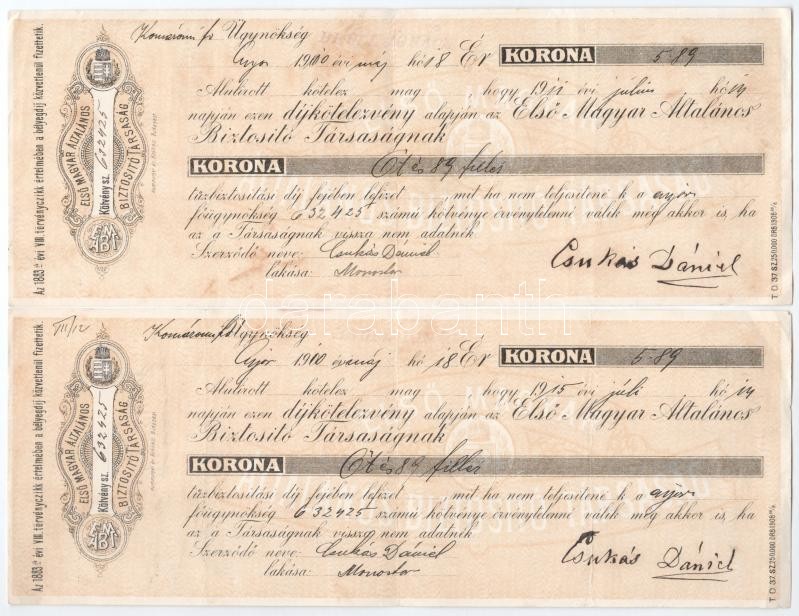 Az 1883ik évi VIII. törvényczikk értelmében a bélyegdij közvetlenül fizettetik.
ELSŐ MAGYAR ÁLTALÁNOS
Kötvény sz. 632425
BIZTOSITÓ TÁRSASÁG
EMABT
Komáromi fő Ügynökség
Győr 1910 évi máj hó 18 Ér KORONA 5·89
Alulirott kötelez mag hogy 1911 évi július hó 14
napján ezen díjkötelezvény alapján az Első Magyar Általános
Biztositó Társaságnak
KORONA Öt és 89 fillér
tüzbiztositási díj fejében lefizet, mit ha nem teljesitené k a győri
főügynökség 632425 számú kötvénye érvénytelenné válik még akkor is, ha
az a Társaságnak vissza nem adatnék
Szerződő neve: Csukás Dániel
lakása: Monostor
Csukás Dániel
T. O. 37. SZ. 250.000. DRB 1908
VII/12
Az 1883ik évi VIII. törvényczikk értelmében a bélyegdij közvetlenül fizettetik.
ELSŐ MAGYAR ÁLTALÁNOS
Kötvény sz. 632425
BIZTOSITÓ TÁRSASÁG
EMABT
Komáromi fő Ügynökség
Győr 1910 évi máj hó 18 Ér KORONA 5·89
Alulirott kötelez mag hogy 1915 évi júli hó 14
napján ezen díjkötelezvény alapján az Első Magyar Általános
Biztositó Társaságnak
KORONA Öt és 89 fillér
tüzbiztositási díj fejében lefizet, mit ha nem teljesitené k a győri
főügynökség 632425 számú kötvénye érvénytelenné válik még akkor is, ha
az a Társaságnak vissza nem adatnék
Szerződő neve: Csukás Dániel
lakása: Monostor
Csukás Dániel
T. O. 37. SZ. 250.000. DRB 1908
darabanth